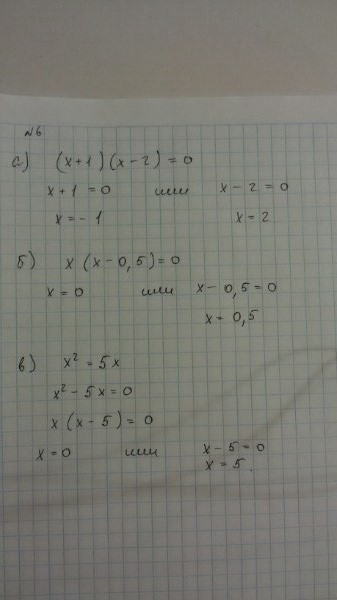 №6
а) (x+1)(x-2)=0
x+1=0 или x-2=0
x=-1 x=2
б) x(x-0,5)=0
x=0 или x-0,5=0
x=0,5
в) x²=5x
x²-5x=0
x(x-5)=0
x=0 или x-5=0
x=5.